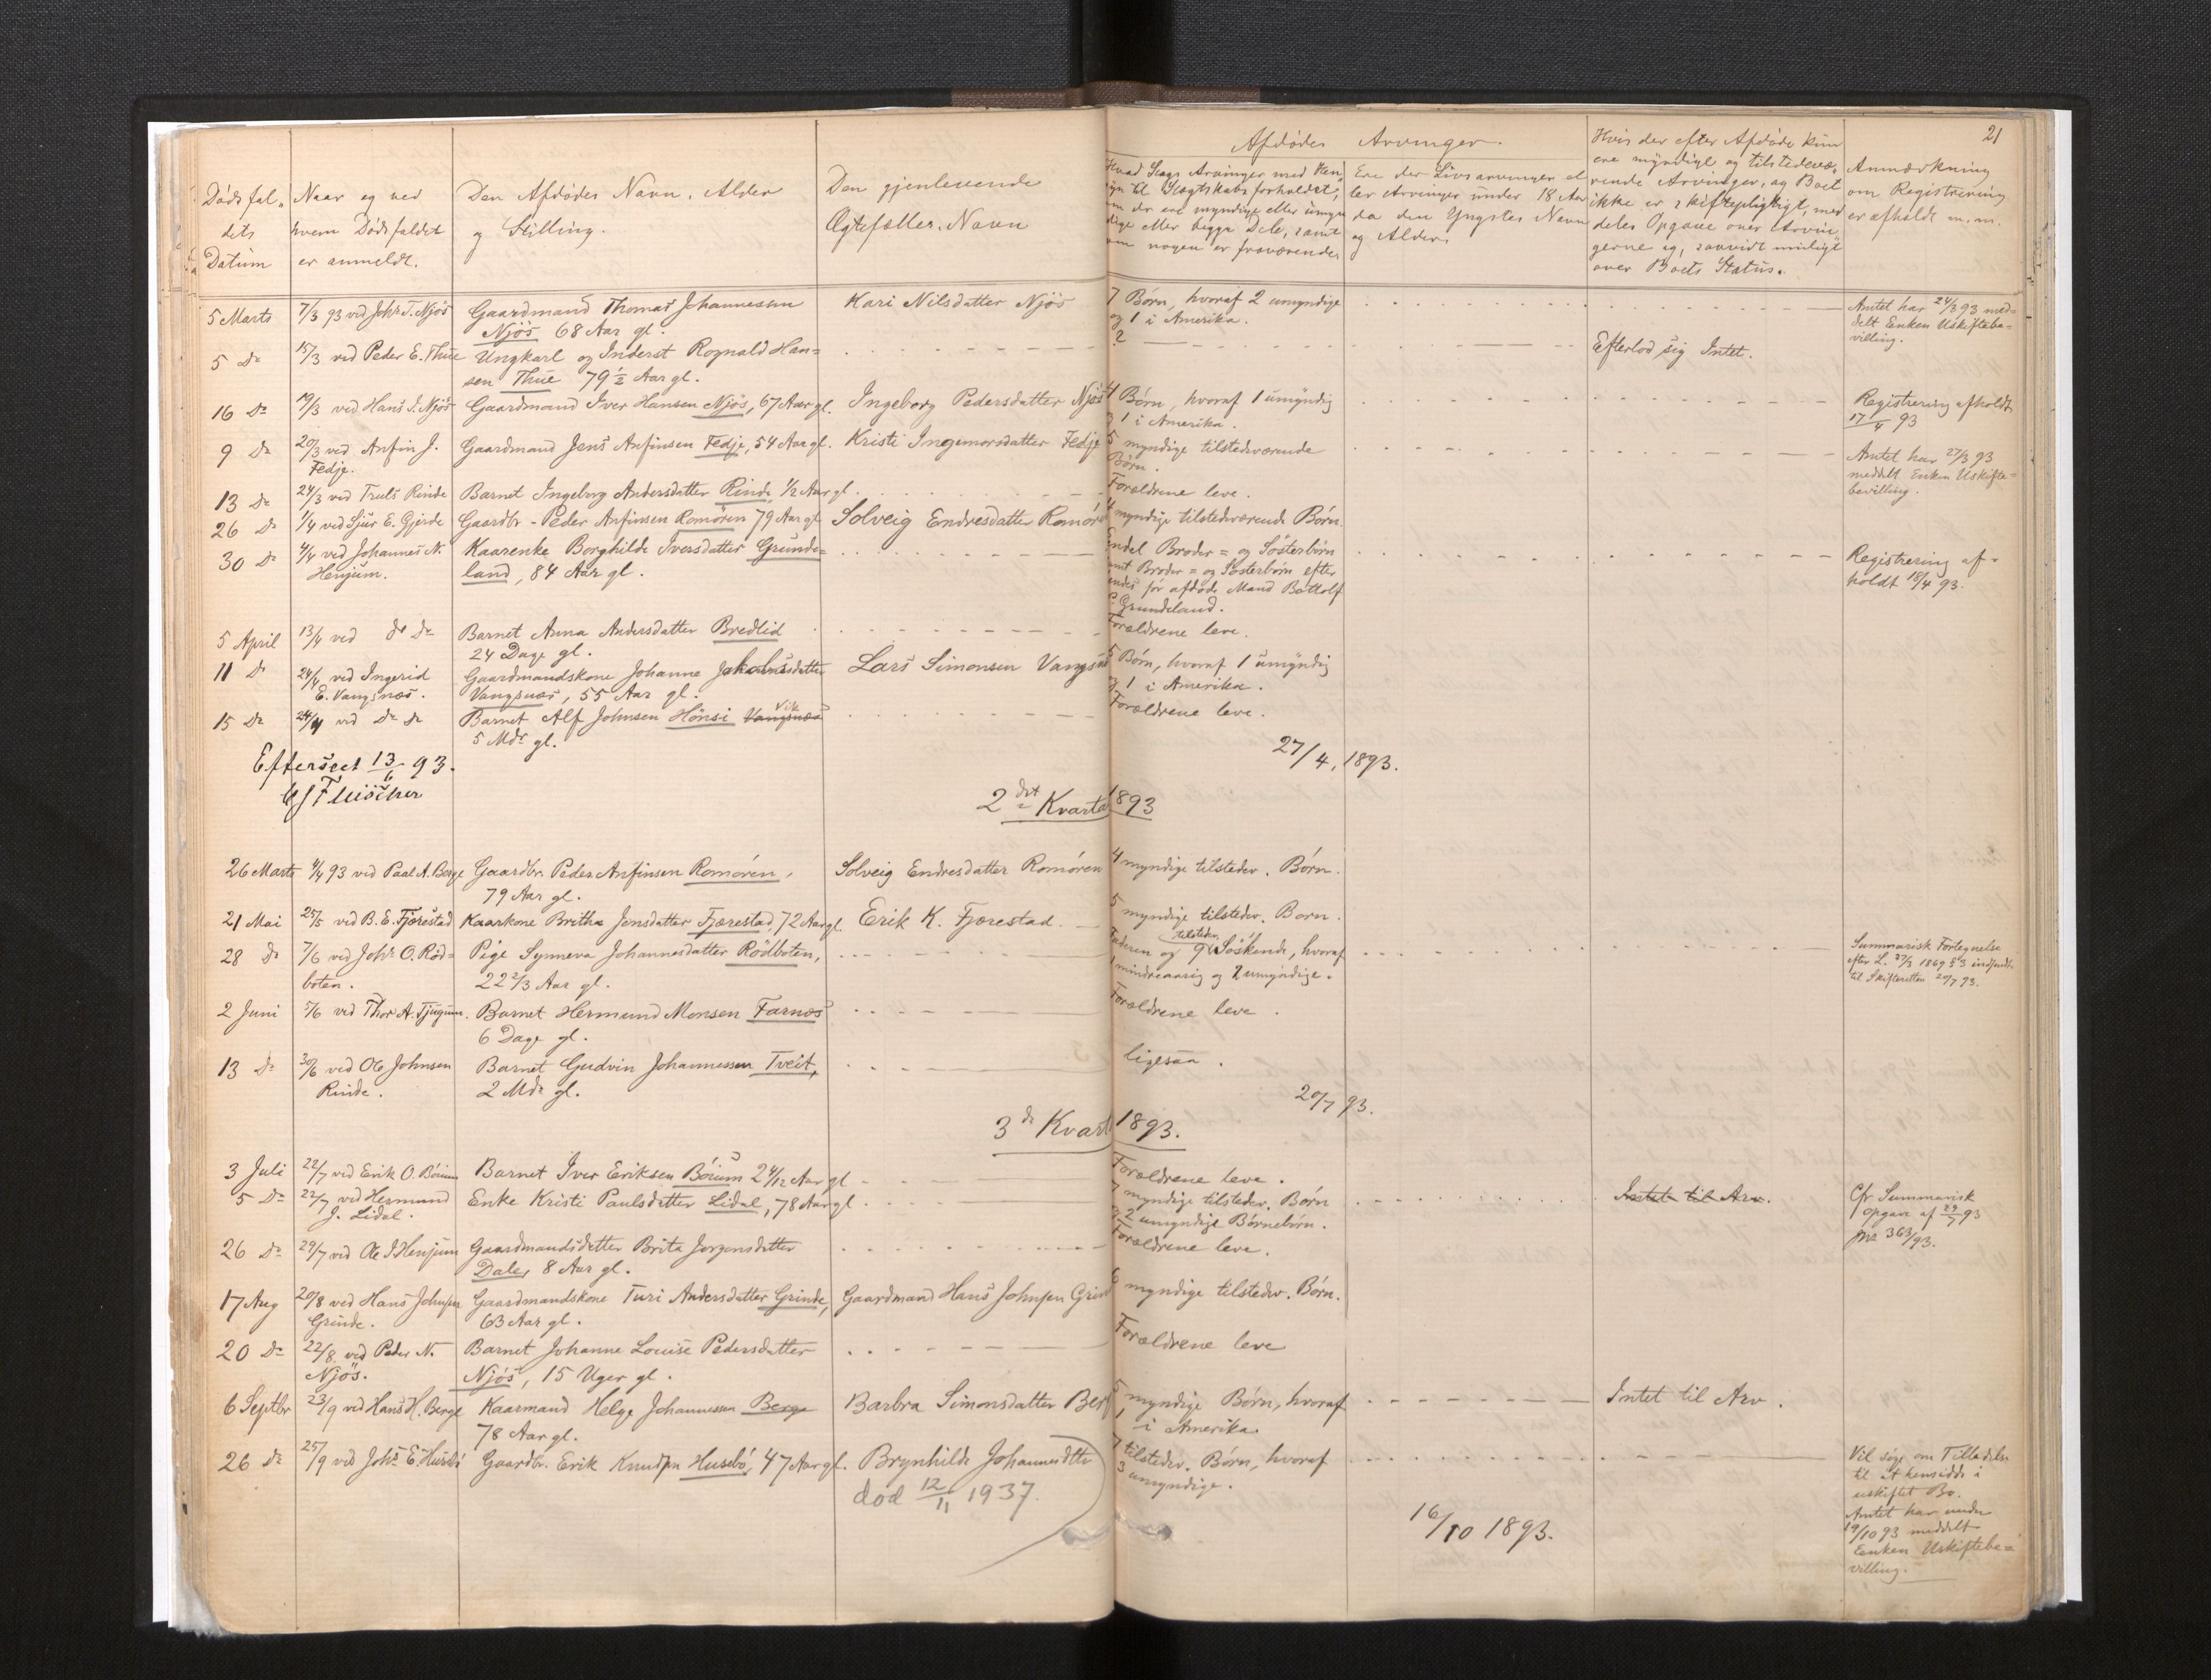 21
Afdødes Arvinger.
Dødsfal-
dets
Datum
Naar og ved
hvem Dødsfaldet
er anmeldt.
Den Afdødes Navn, Alder
og Stilling.
Den gjenlevende
Ægtefælles Navn
Hvad Slags Arvinger med Hen-
syn til Slægtskabsforholdet,
om de ere myndige eller umyn
dige eller begge Dele, samt
om nogen er fraværende
Ere der Livsarvinger el
ler Arvinger under 18 Aar
da den Yngstes Navn
og Alder.
Hvis der efter Afdøde kun
ere myndige og tilstedevæ-
rende Arvinger, og Boet
ikke er skiftepligtigt, med
deles Opgave over Arvin
gerne og, saavidt muligt
over Boets Status.
Anmærkning
om Registrering
er afholdt m.m.
5 Marts 7/3 93 ved Johs T. Njøs Gaardmand Thomas Johannessen Kari Nilsdatter Njøs 7 Børn, hvoraf 2 umyndige Amtet har 24/3 93 med-
Njøs 68 Aar gl. og 1 i Amerika. delt Enken Uskiftebe-
villing.
5 Do 15/3 ved Peder E. Thue Ungkarl og Inderst Rognald Han= ? Efterlod sig Intet.
sen Thue 79 1/2 Aar gl.
16 Do 19/3 ved Hans I. Njøs Gaardmand Iver Hansen Njøs, 67 Aar gl. Ingeborg Pedersdatter Njøs 4 Børn, hvoraf 1 umyndig Registrering afholdt
og 1 i Amerika. 17/4 93
9 Do 20/3 ved Anfin J. Gaardmand Jens Anfinsen Fedje, 54 Aar gl. Kristi Ingemorsdatter Fedje 5 myndige tilstedeværende Amtet har 27/3 93
Fedje. Børn. meddelt Enken Uskifte=
bevilling.
13 Do 24/3 ved Truls Rinde Barnet Ingeborg Andersdatter Rinde, 1/2 Aar gl. Forældrene leve.
26 Do 1/4 ved Sjur E. Gjerde Gaardbr. Peder Anfinsen Romøren 79 Aar gl Solveig Endresdatter Romøre 4 myndige tilstedeværende Børn.
30 Do 4/4 ved Johannes N. Kaarenke Borghilde Iversdatter Grunde= Endel Broder= og Søsterbørn Registrering af-
Henjum. land, 84 Aar gl. samt Broder= og Søsterbørn efter holdt 18/4 93.
hendes før afdøde Mand Bottolf
P. Grundeland.
5 April 13/4 ved do Do Barnet Anna Andersdatter Bredlid Forældrene leve.
24 Dage gl.
11 Do 24/4 ved Ingerid Gaardmandskone Johanne Jakobsdatter Lars Simonsen Vangsnæs 5 Børn, hvoraf 1 umyndig
E. Vangsnæs. Vangsnæs, 55 Aar gl. og 1 i Amerika.
15 Do 24/4 ved Do do Barnet Alf Johnsen Hønsi Vangsnæs Vik Forældrene leve.
5 Mdr gl.
Efterseet 13/6 93. 27/4, 1893.
2det Kvartal 1893
26 Marts 4/4 93 ved Paal A. Berge Gaardbr. Peder Anfinsen Romøren, Solveig Endresdatter Romøren 4 myndige tilstedev. Børn.
79 Aar gl.
21 Mai 25/5 ved B. E. Fjærestad Kaarkone Britha Jensdatter Fjærestad, 72 Aar gl. Erik K. Fjærestad. 5 myndige tilstedev. Børn.
28 Do 7/6 ved Johs O. Rød= Pige Synneva Johannesdatter Rødboten, Faderen og 9 tilstedev. Søskende, hvoraf Summarisk Fortegnelse
boten. 22 2/3 Aar gl. 1 mindreaarig og 2 umyndige. efter L. 27/3 1869 § 3 indsendt
til Skifteretten 20/7 93.
2 Juni 5/6 ved Thor A. Tjugum. Barnet Hermund Monsen Farnæs Forældrene leve.
6 Dage gl.
13 Do 30/6 ved Ole Johnsen Barnet Gudvin Johannessen Tveit, ligesaa.
Rinde. 2 Mdr gl.
20/7 93.
3de Kvart 1893.
3 Juli 22/7 ved Erik O. Bøium Barnet Iver Eriksen Bøium 2 4/12 Aar gl Forældrene leve.
5 Do 22/7 ved Hermund Enke Kristi Paulsdatter Lidal, 78 Aar gl 7 myndige tilstedev. Børn Intet til Arv. Cfr Summarisk
J. Lidal. og 2 umyndige Børnebørn. Opgave af 29/7 93
Jno 363/93.
26 Do 29/7 ved Ole I Henjum Gaardmandsdatter Brita Jørgensdatter Forældrene leve.
Dale, 8 Aar gl.
17 Aug 20/8 ved Hans Johnsen Gaardmandskone Turi Andersdatter Grinde, Gaardmand Hans Johnsen Grind 6 myndige tilstedev. Børn.
Grinde. 63 Aar gl.
20 Do 22/8 ved Peder N. Barnet Johanne Louise Pedersdatter Forældrene leve
Njøs. Njøs, 15 Uger gl.
6 Septbr 23/9 ved Hans H. Berge Kaarmand Helge Johannessen Berge Barbra Simonsdatter Berg 5 myndige Børn, hvoraf Intet til Arv.
78 Aar gl. 1 i Amerika
26 Do 25/9 ved Johs E. Husebø Gaardbr. Erik Knudsen Husebø, 47 Aar gl. Brynhilde Johannesdtter 7 tilstedev. Børn, hvoraf Vil søge om Tilladelse
død 12/11 1937. 3 umyndige. til at hensidde i
uskiftet Bo.
16/10 1893. Amtet har under
19/10 93 meddelt
Enken Uskiftebe=
villing.